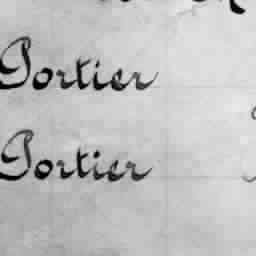 Portier
Portier